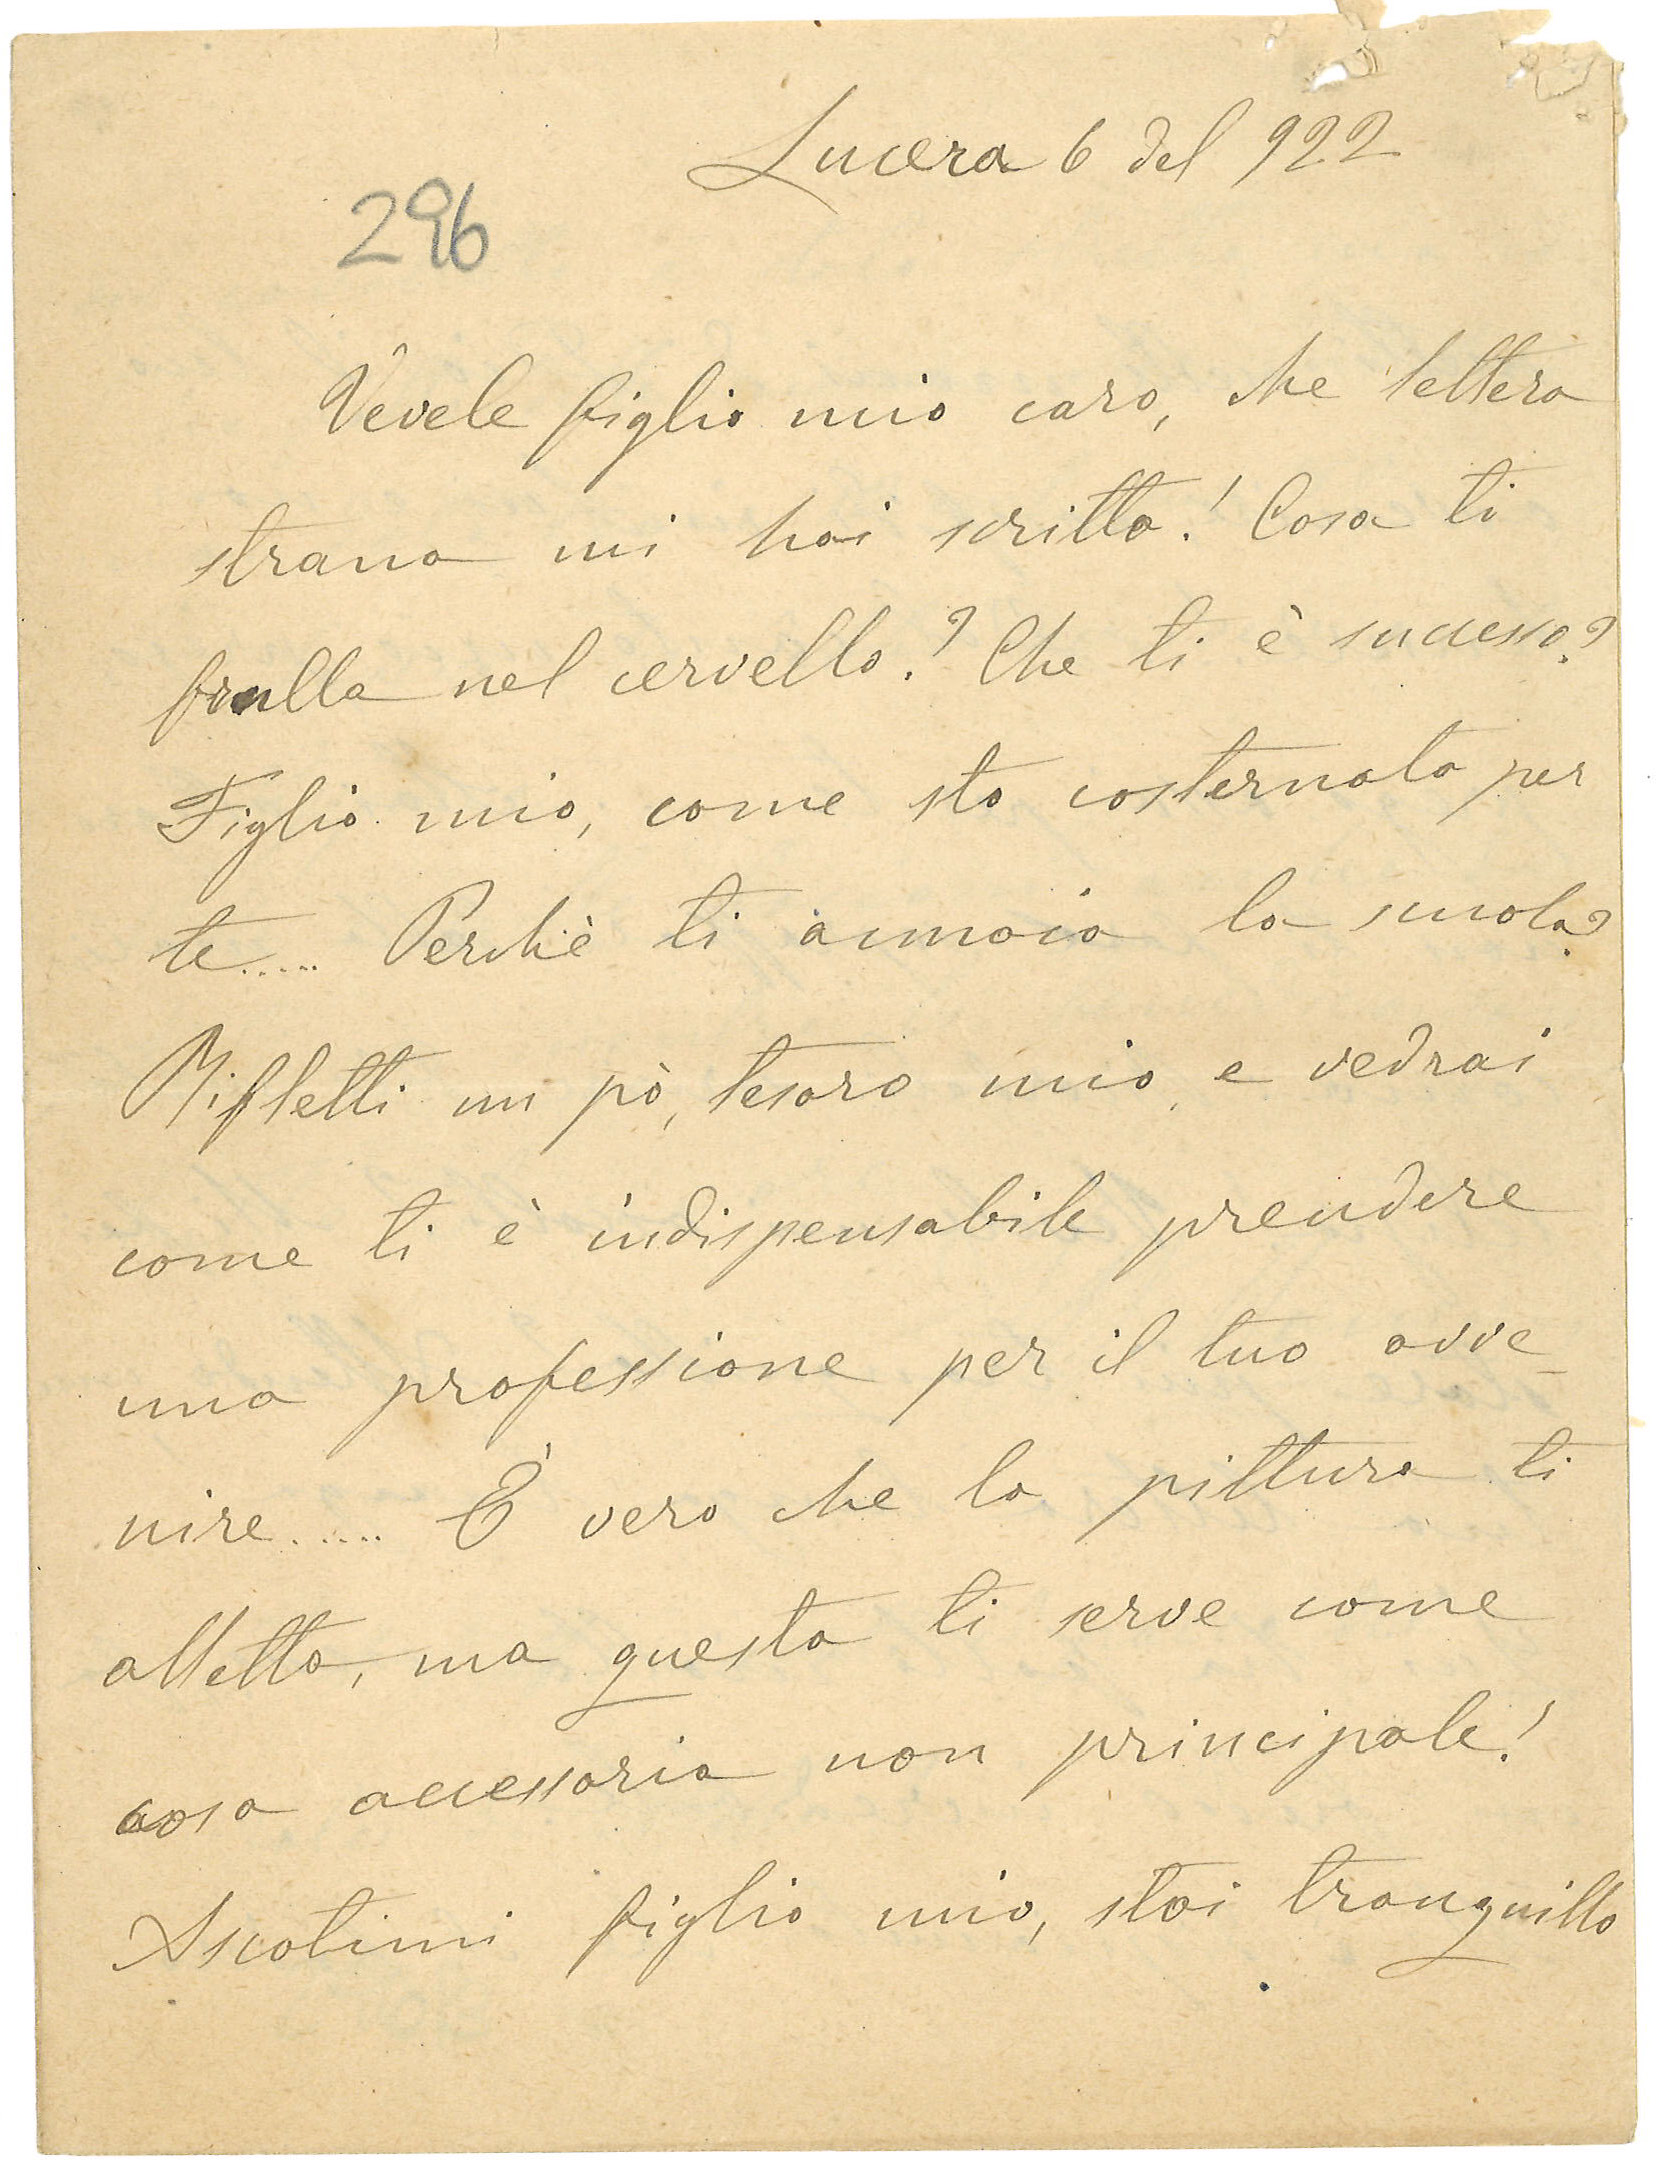 Lucera 6 del 922
296
Vevele figlio mio caro, che lettera
strana mi hai scritto! Cosa ti
frulla nel cervello? Che ti è successo?
Figlio mio, come sto costernata per
te..... Perchè ti annoia la scuola?
Rifletti un pò, tesoro mio, e vedrai
come ti è indispensabile prendere
una professione per il tuo avve-
nire..... È vero che la pittura ti
alletta, ma questa ti serve come
cosa accessoria non principale!
Ascotimi figlio mio, stai tranquillo